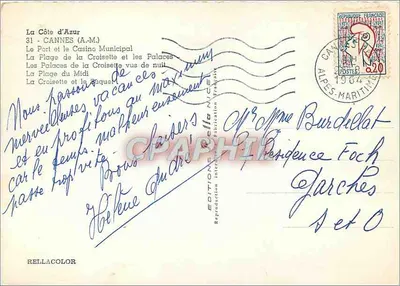 La Côte d'Azur
31 - CANNES (A.-M.)
Le Port et le Casino Municipal
La Plage de la Croisette et les Palaces
Les Palaces de la Croisette vus de nuit
La Plage du Midi
La Croisette et le
Nous passons de
merveilleuses vacances
et en profitons au maximum
car le temps malheureusement
passe trop vite.
Bons baisers
Hélène André
RELLACOLOR
EDITIONS Rella NICE
REPUBLIQUE FRANCAISE
POSTES 0,20
CANNES
1964
ALPES-MARITIMES
Mr Mme Burdellat
Résidence Foch
Garches
S et O
CPAPHIL